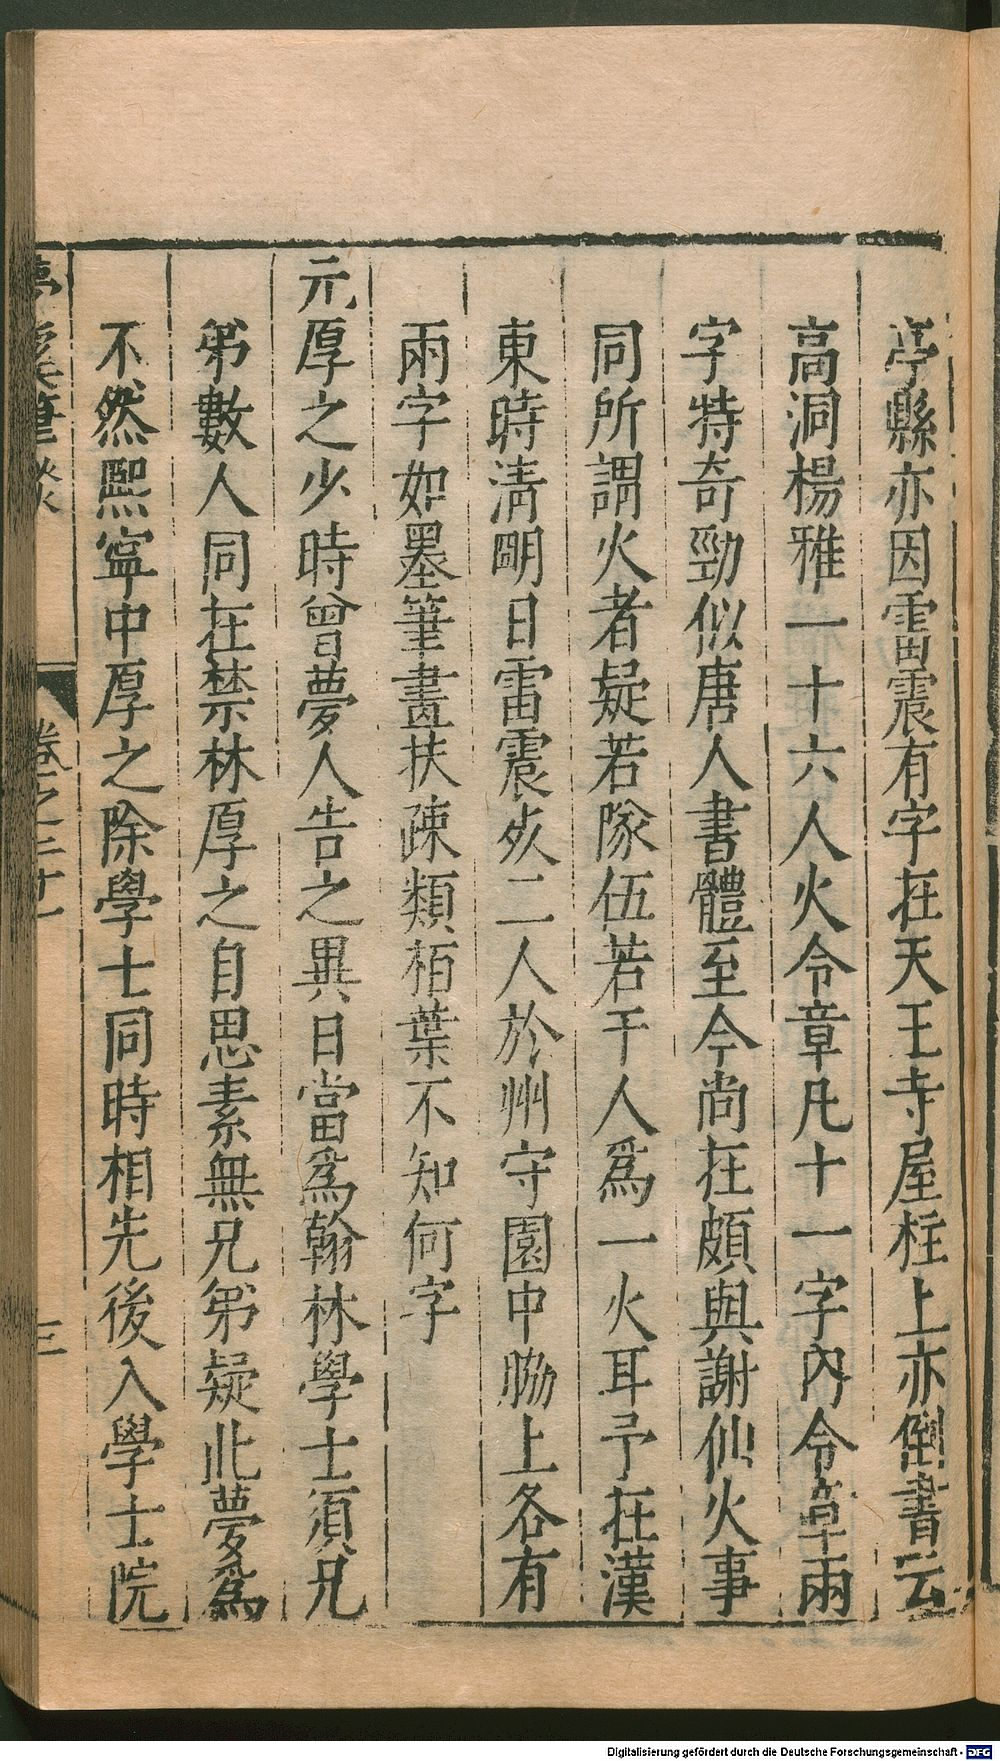 亭縣亦因雷震有字在天王寺屋柱上亦倒書云
高洞楊雅一十六人火令章凡十一字內令章兩
字特奇勁似唐人書體至今尚在頗與謝仙火事
同所謂火者疑若隊伍若干人爲一火耳予在漢
東時清明日雷震死二人於州守園中脇上各有
兩字如墨筆畫扶疎類栢葉不知何字
元厚之少時曾夢人告之異日當爲翰林學士須兄
弟數人同在禁林厚之自思素無兄弟疑此夢爲
不然熙寧中厚之除學士同時相先後入學士院
夢溪筆談
卷之二十一
三
Digitalisierung gefördert durch die Deutsche Forschungsgemeinschaft - DFG